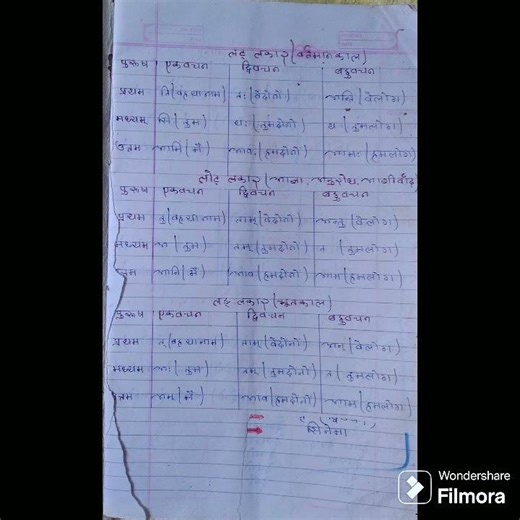 लट् लकार (वर्तमानकाल)
पुरुष एकवचन द्विवचन बहुवचन
प्रथम ति (वह या नाम) तः (वेदोनों) अन्ति (वेलोग)
मध्यम सि (तुम) थः (तुमदोनों) थ (तुमलोग)
उत्तम आमि (मैं) आवः (हमदोनों) आमः (हमलोग)
लोट् लकार (आज्ञा, अनुरोध, आशीर्वाद)
पुरुष एकवचन द्विवचन बहुवचन
प्रथम तु (वह या नाम) ताम् (वेदोनों) अन्तु (वेलोग)
मध्यम अ (तुम) तम् (तुमदोनों) त (तुमलोग)
उत्तम आनि (मैं) आव (हमदोनों) आम (हमलोग)
लङ् लकार (भूतकाल)
पुरुष एकवचन द्विवचन बहुवचन
प्रथम त् (वह या नाम) ताम् (वेदोनों) अन् (वेलोग)
मध्यम अः (तुम) तम् (तुमदोनों) त (तुमलोग)
उत्तम अम् (मैं) आव (हमदोनों) आम (हमलोग)
सिनेमा
Wondershare
Filmora